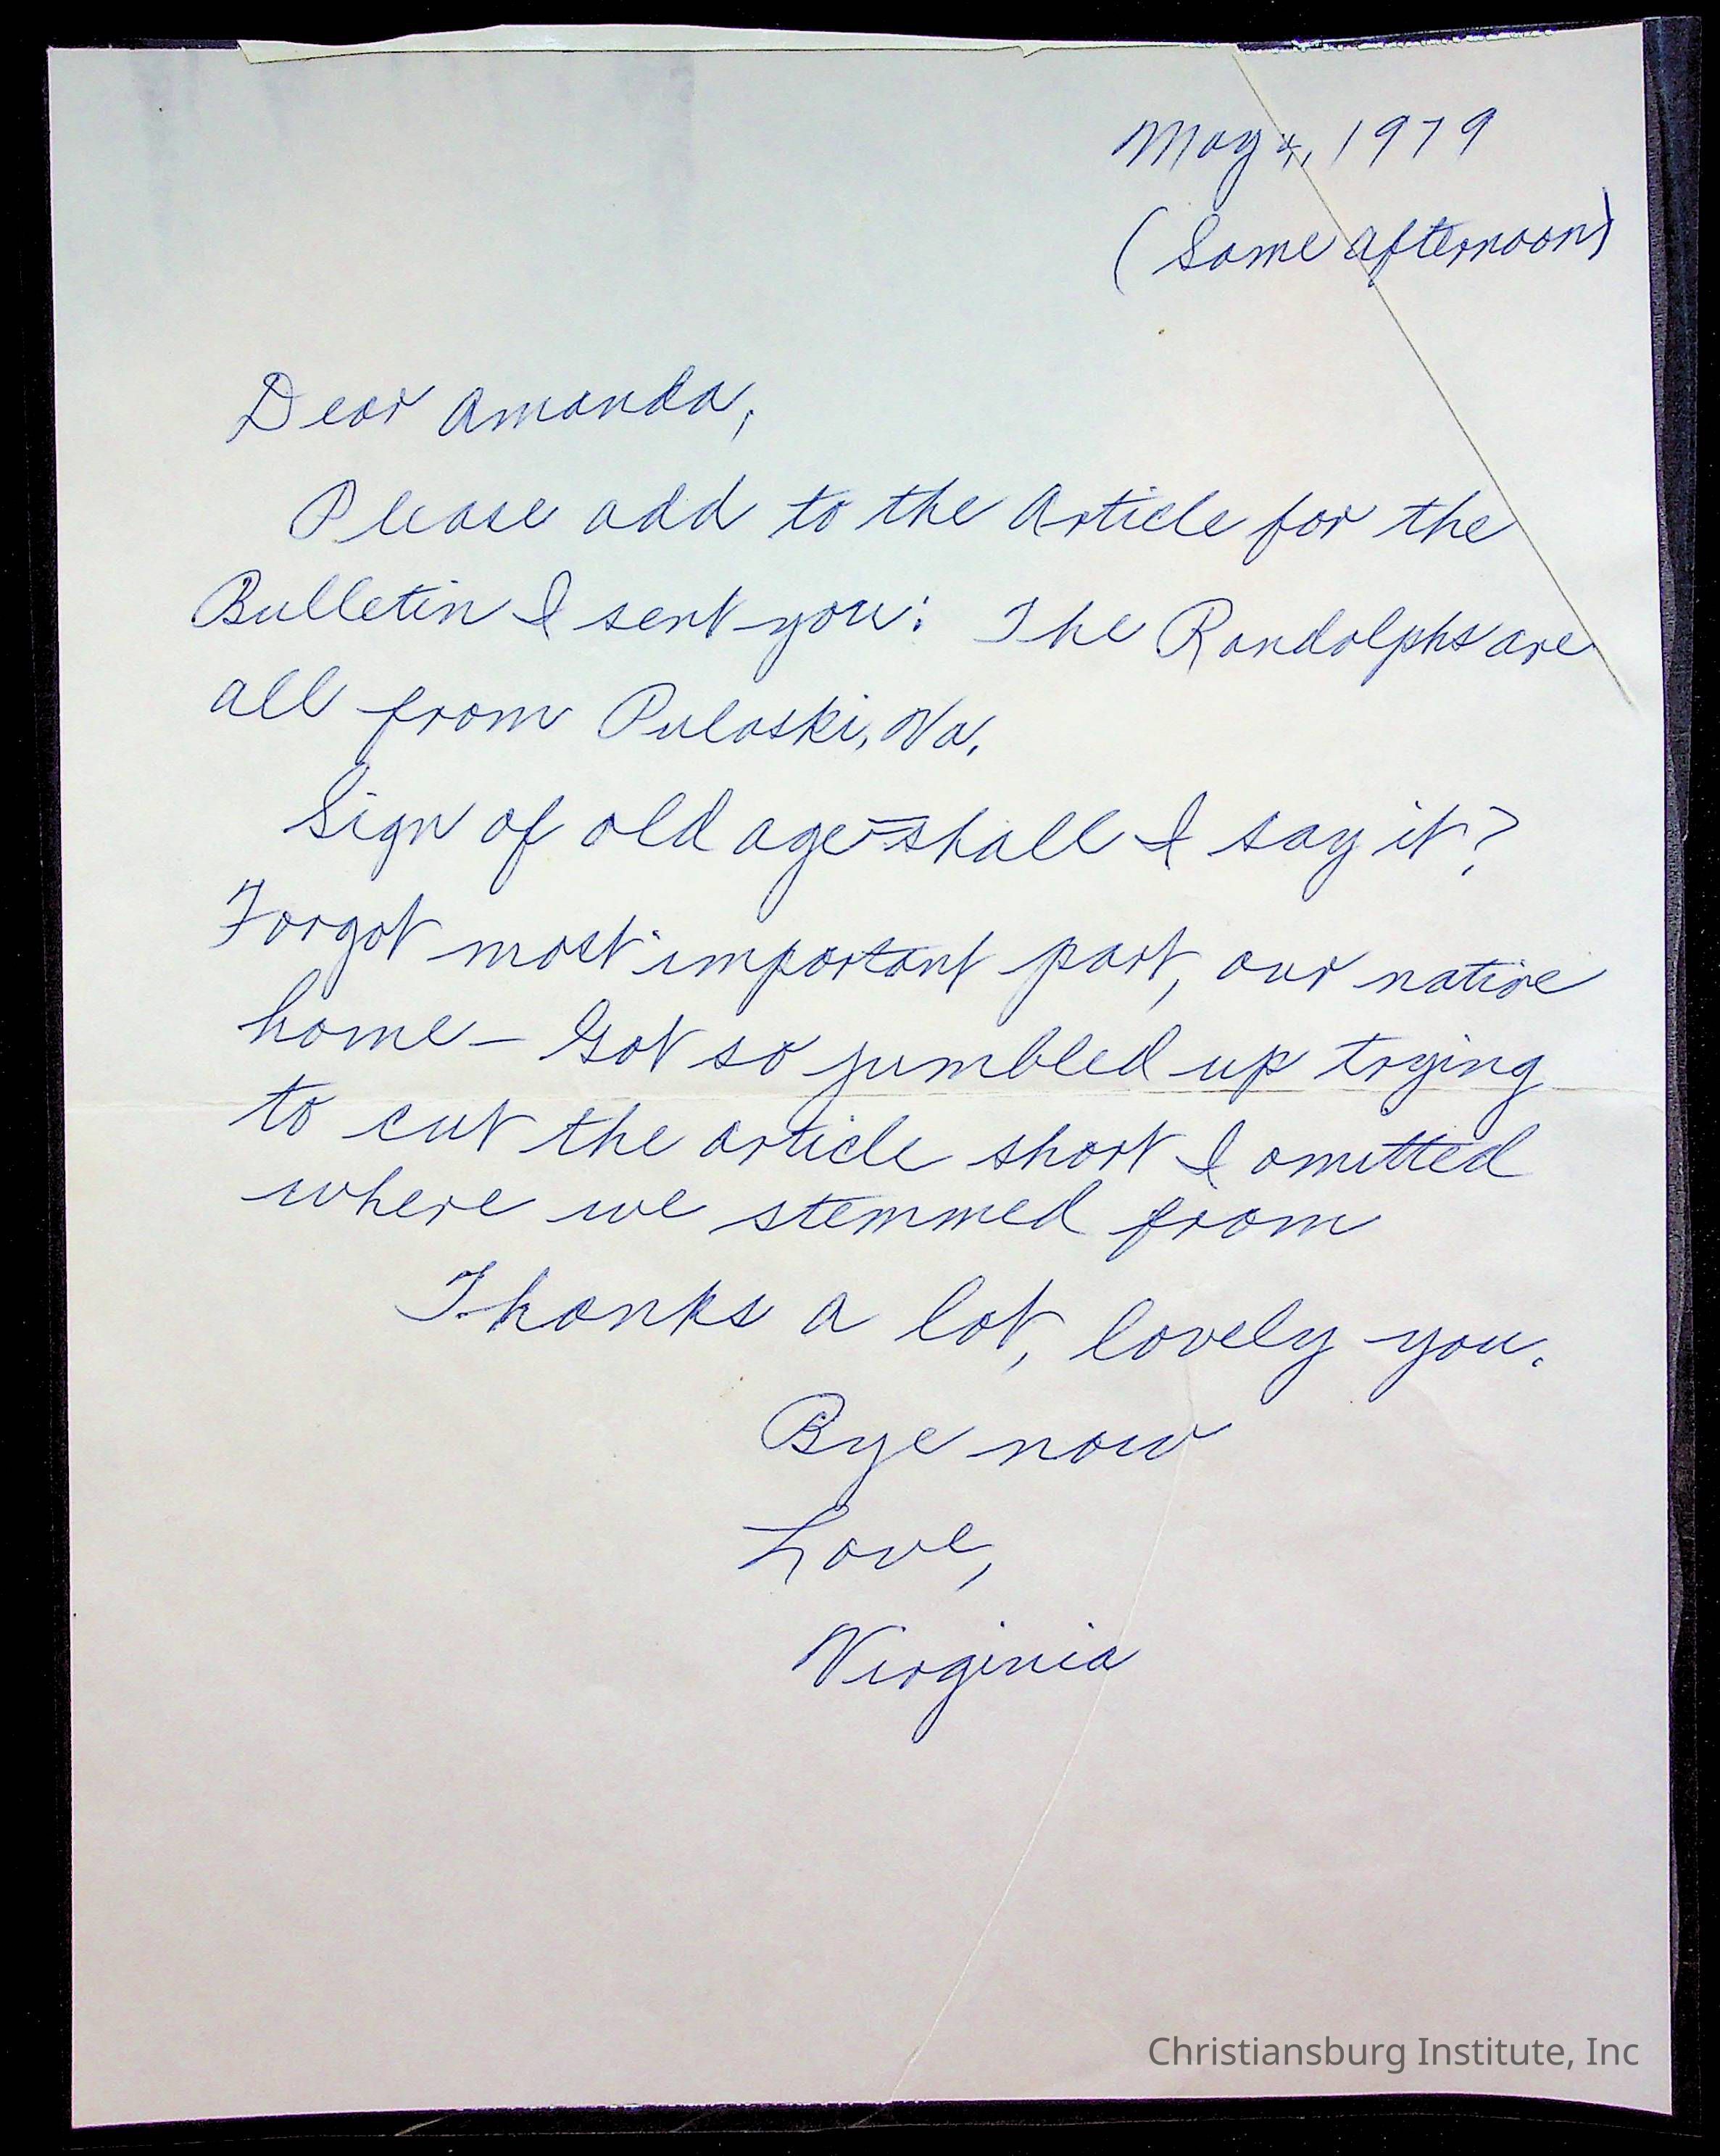 May 4, 1979
(Same afternoon)
Dear Amanda,
Please add to the Article for the
Bulletin I sent you: The Randolphs are
all from Pulaski, Va.
Sign of old age - shall I say it?
Forgot most important part, our native
home - Got so jumbled up trying
to cut the article short I omitted
where we stemmed from
Thanks a lot, lovely you.
Bye now
Love,
Virginia
Christiansburg Institute, Inc